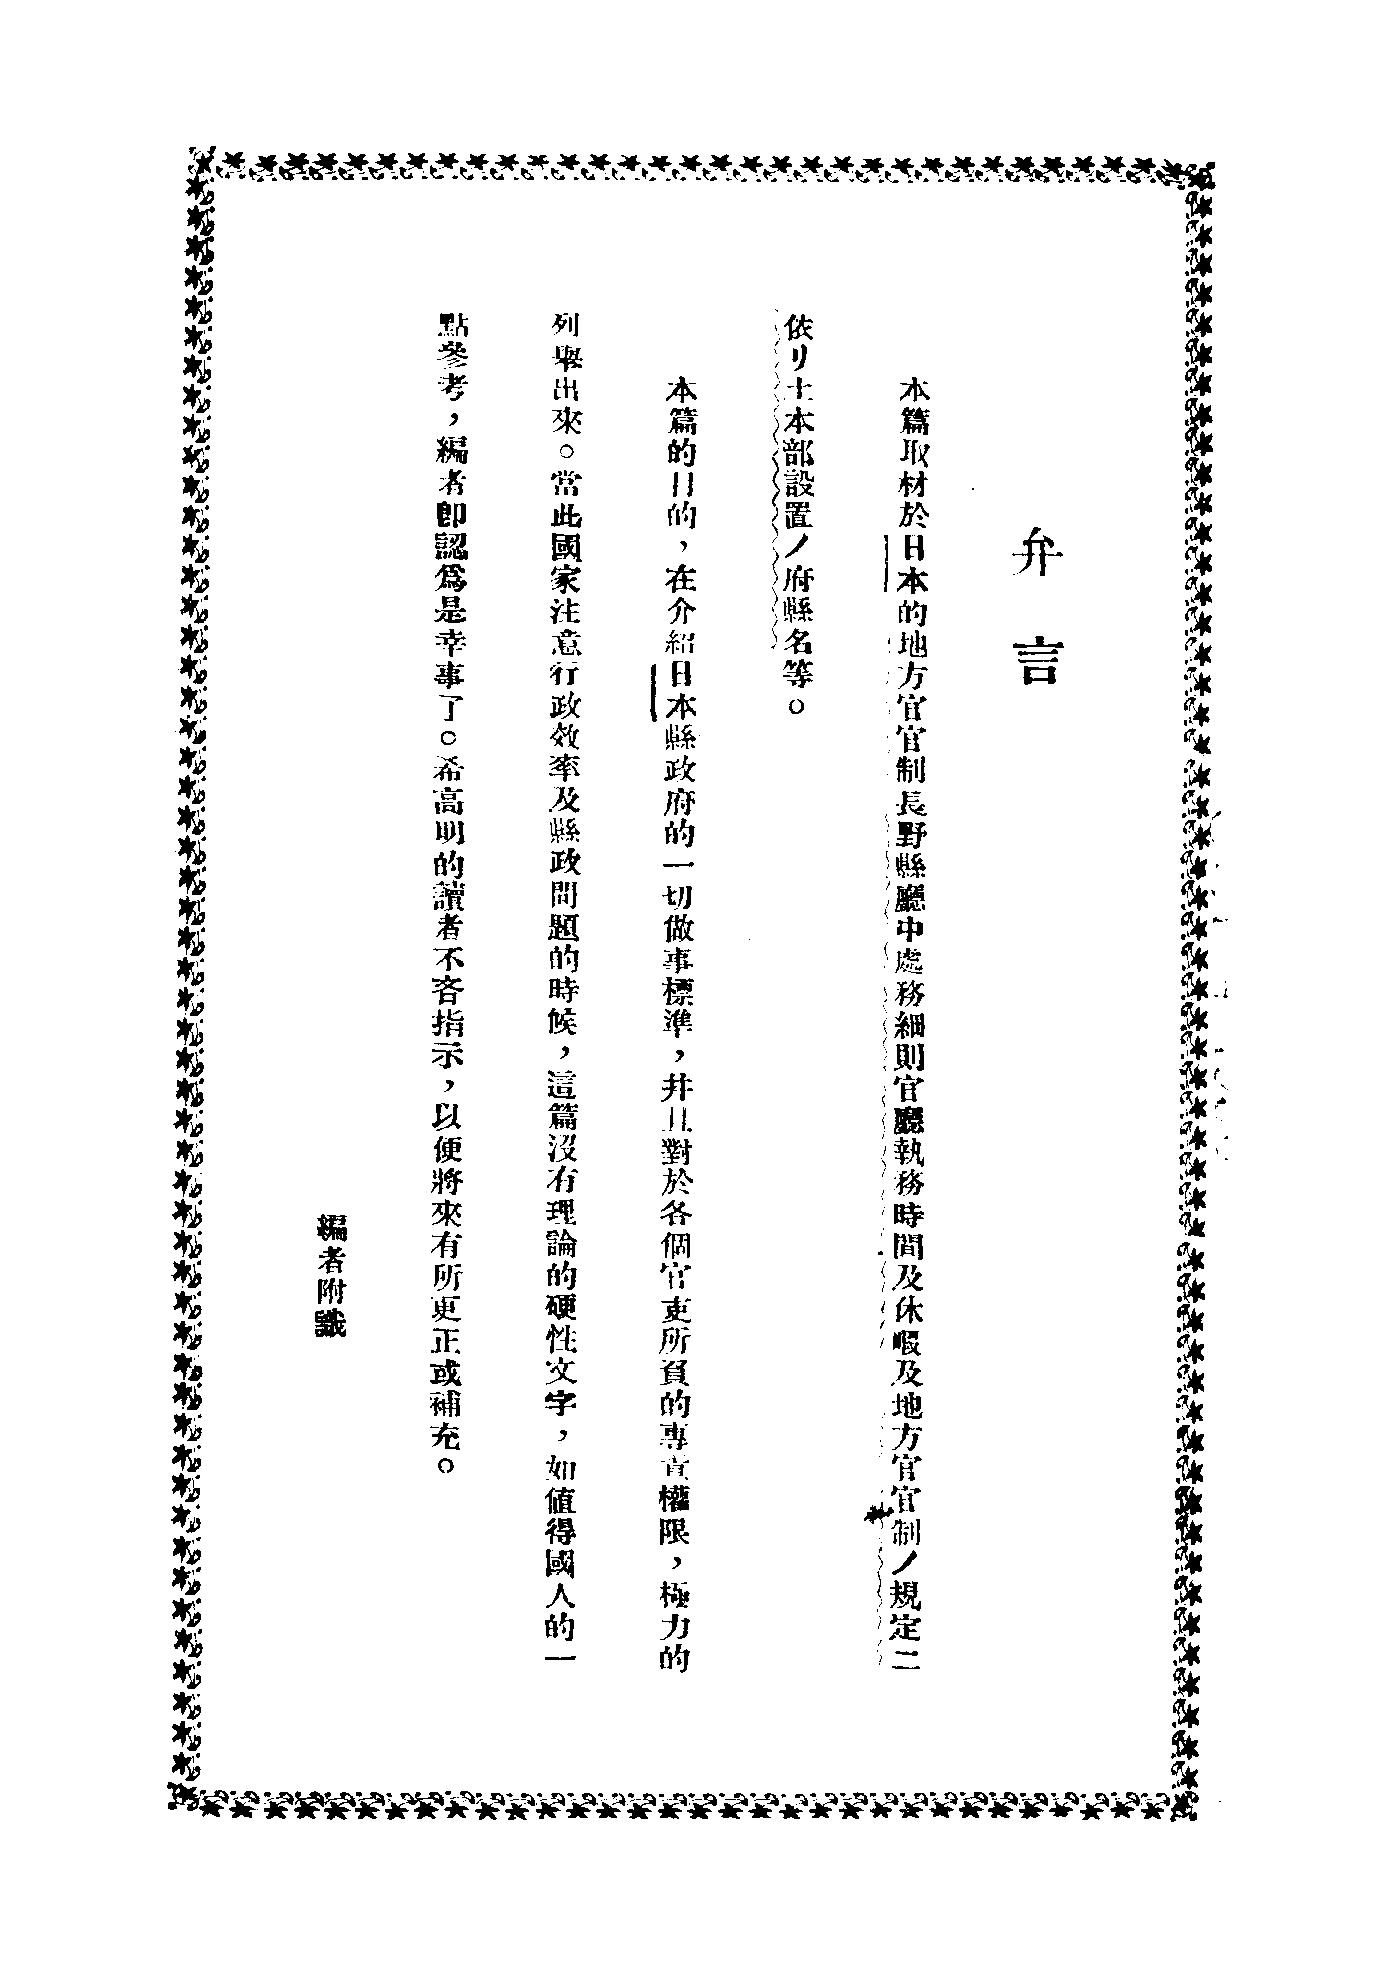 弁言
本篇取材於日本的地方官官制長野縣廳中處務細則官廳執務時間及休暇及地方官官制ノ規定ニ
依リ土本部設置ノ府縣名等。
本篇的目的，在介紹日本縣政府的一切做事標準，幷且對於各個官吏所負的專責權限，極力的
列舉出來。當此國家注意行政效率及縣政問題的時候，這篇沒有理論的硬性文字，如值得國人的一
點參考，編者卽認爲是幸事了。希高明的讀者不吝指示，以便將來有所更正或補充。
編者附識